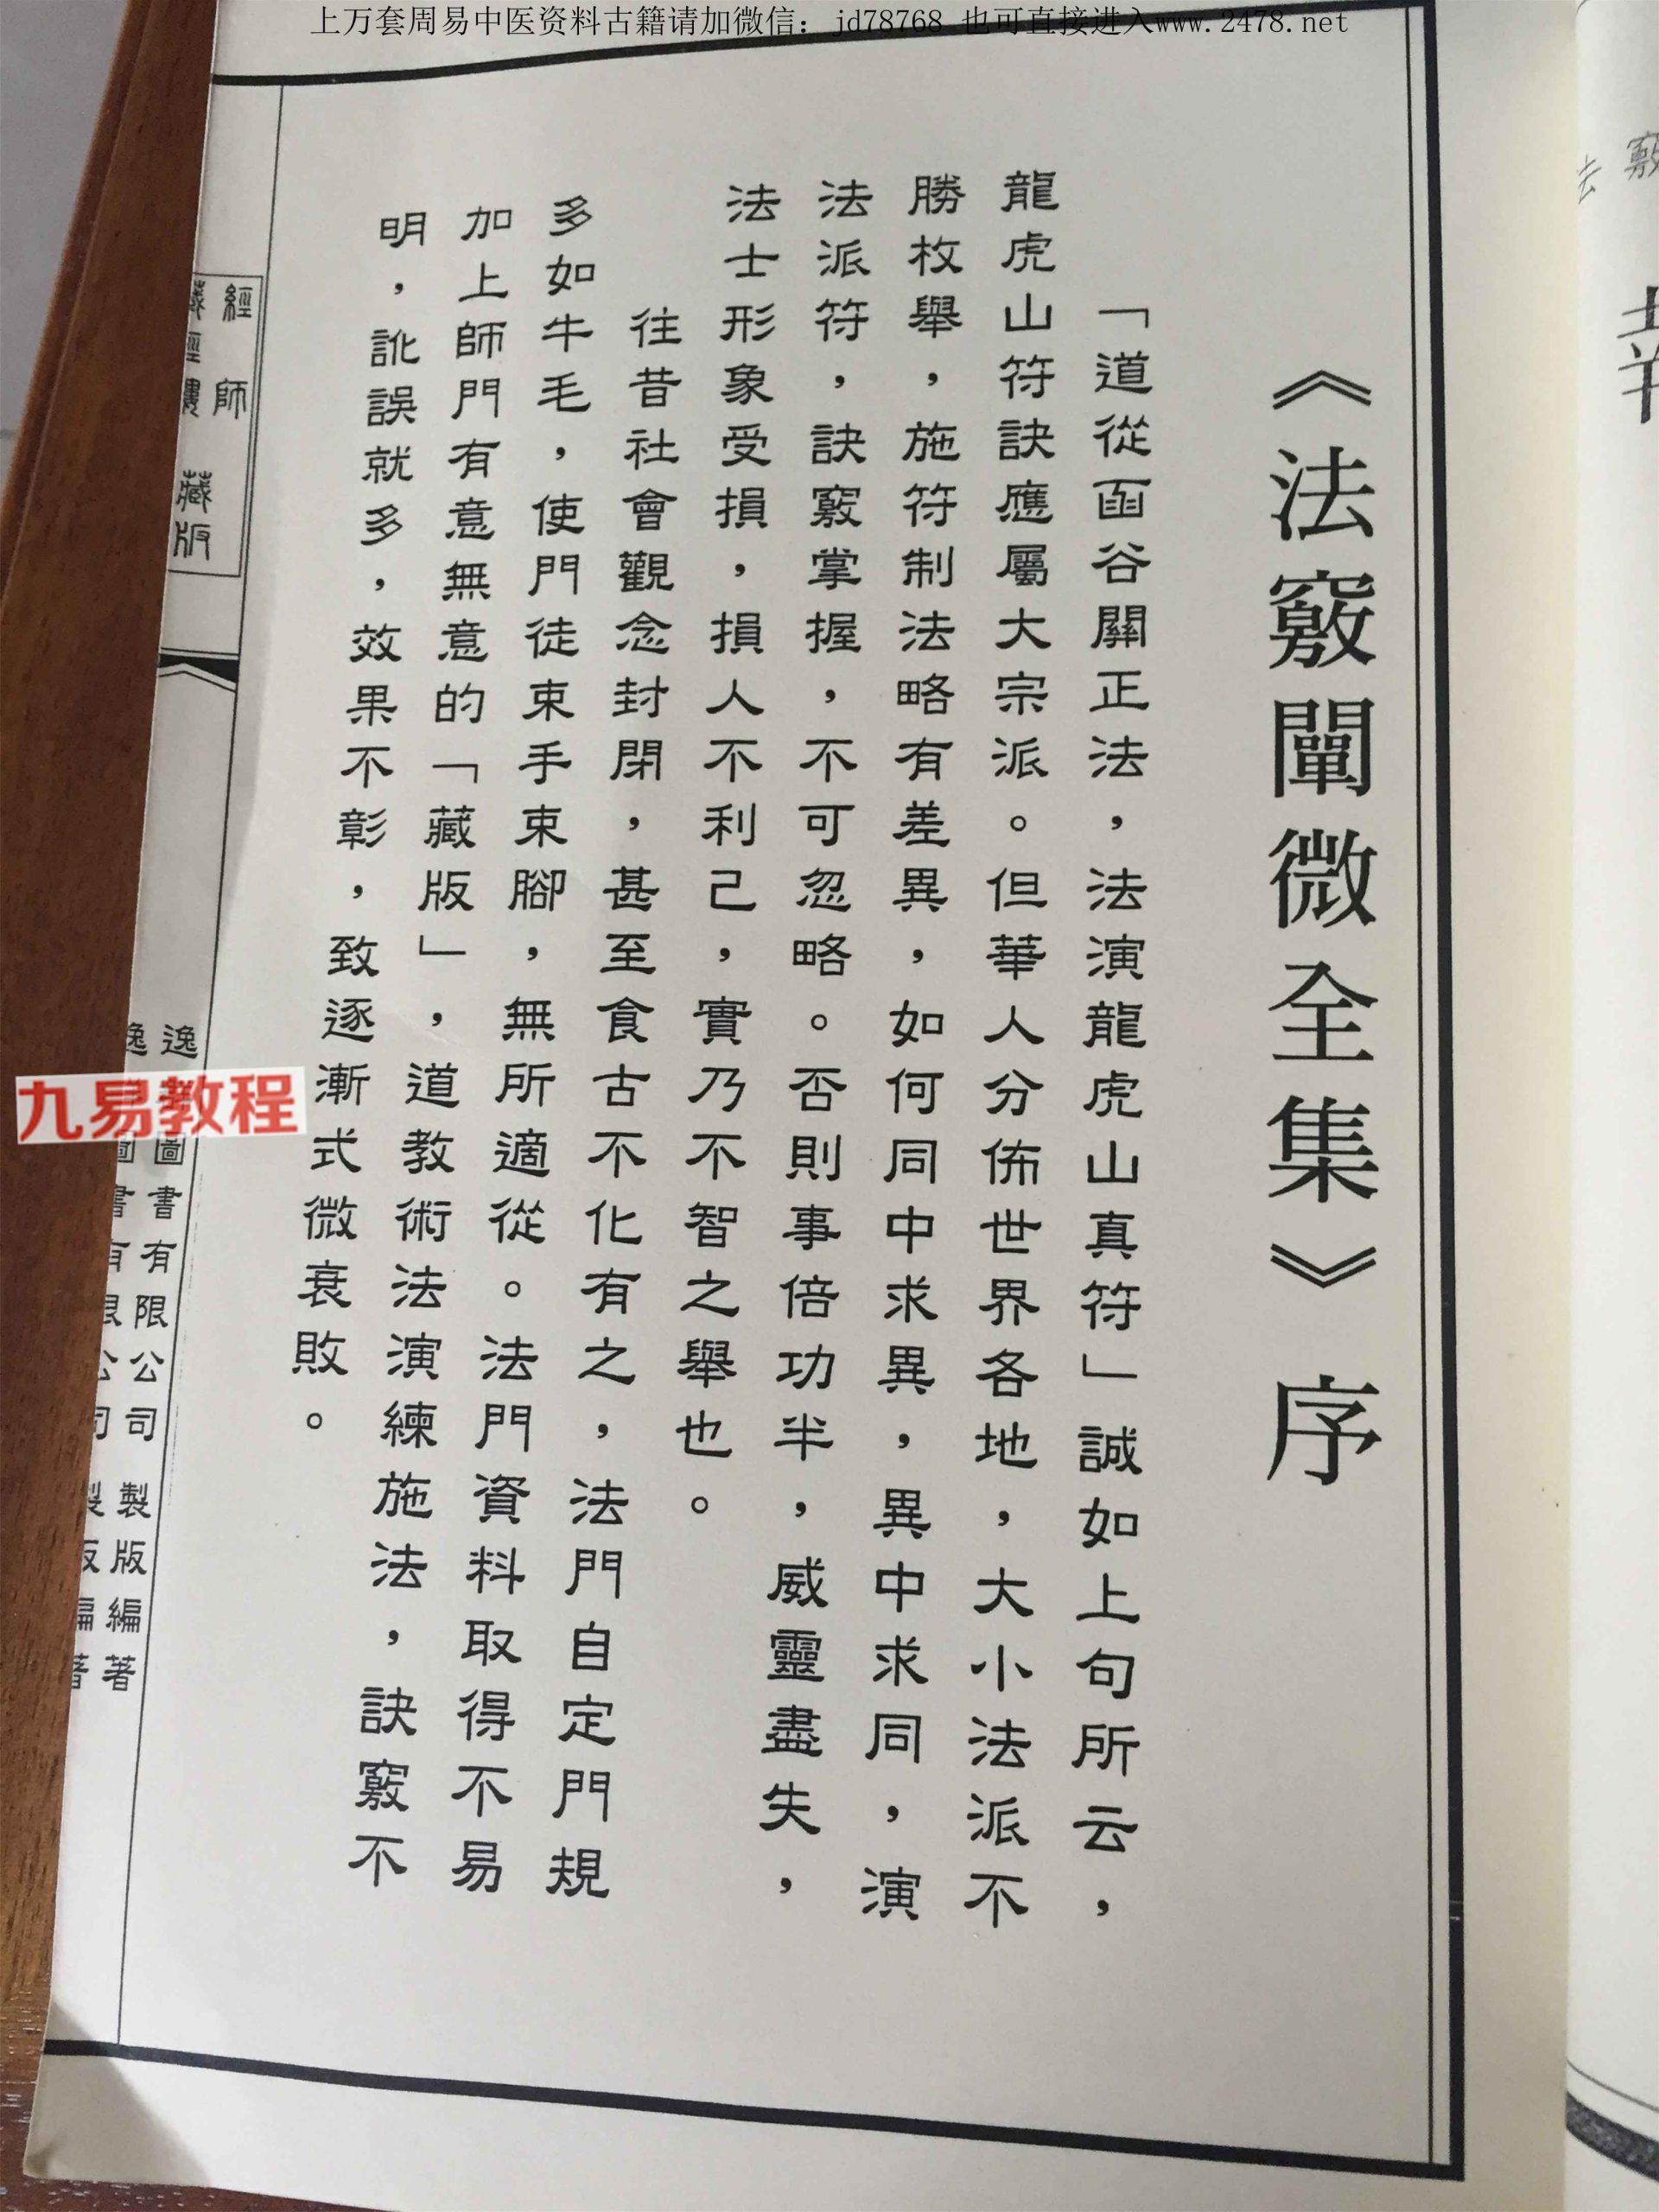 上万套周易中医资料古籍请加微信：jd78768 也可直接进入www.2478.net
《法竅闡微全集》序
「道從函谷關正法，法演龍虎山真符」誠如上句所云，
龍虎山符訣應屬大宗派。但華人分佈世界各地，大小法派不
勝枚舉，施符制法略有差異，如何同中求異，異中求同，演
法派符，訣竅掌握，不可忽略。否則事倍功半，威靈盡失，
法士形象受損，損人不利己，實乃不智之舉也。
往昔社會觀念封閉，甚至食古不化有之，法門自定門規
多如牛毛，使門徒束手束腳，無所適從。法門資料取得不易
加上師門有意無意的「藏版」，道教術法演練施法，訣竅不
明，訛誤就多，效果不彰，致逐漸式微衰敗。
經師
藏經樓
藏版
逸
圖書有限公司 製版編著
九易教程
法竅